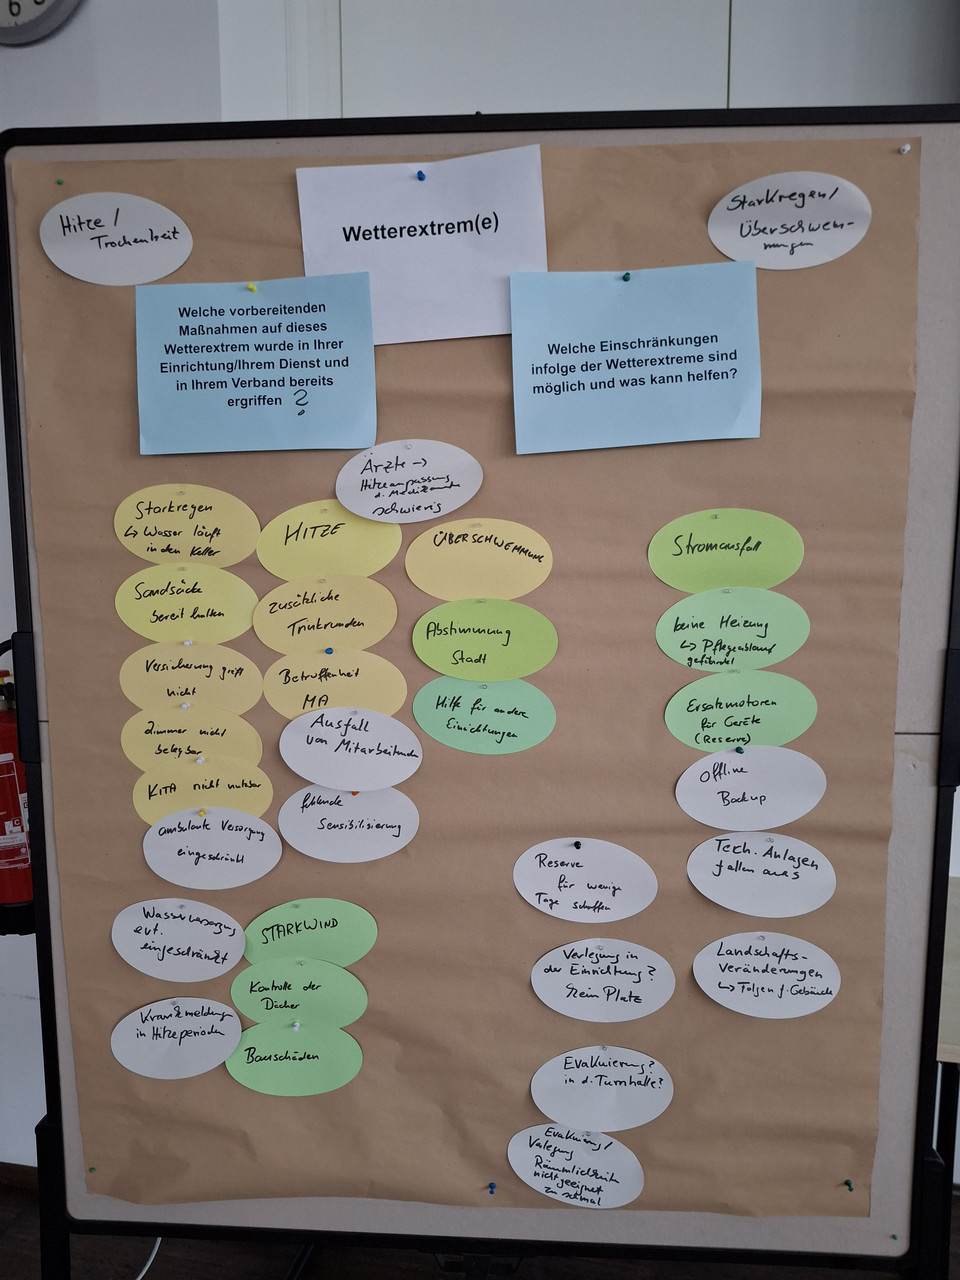 6
Hitze /
Trockenheit
Wetterextrem(e)
Starkregen/
Überschwem-
mungen
Welche vorbereitenden
Maßnahmen auf dieses
Wetterextrem wurde in Ihrer
Einrichtung/Ihrem Dienst und
in Ihrem Verband bereits
ergriffen ?
Welche Einschränkungen
infolge der Wetterextreme sind
möglich und was kann helfen?
Ärzte →
Hitzeanpassung
d. Medikamente
schwierig
Starkregen
↳ Wasser läuft
in den Keller
Sandsäcke
bereit halten
Versicherung greift
nicht
Zimmer nicht
belegbar
KITA nicht nutzbar
ambulante Versorgung
eingeschränkt
HITZE
zusätzliche
Trinkrunden
Betroffenheit
MA
Ausfall
von Mitarbeitenden
fehlende
Sensibilisierung
ÜBERSCHWEMMUNG
Abstimmung
Stadt
Hilfe für andere
Einrichtungen
Stromausfall
keine Heizung
↳ Pflegeablauf
gefährdet
Ersatzmotoren
für Geräte
(Reserve)
Offline
Backup
Tech. Anlagen
fallen aus
Landschafts-
veränderungen
↳ Folgen f. Gebäude
Reserve
für wenige
Tage schaffen
Verlegung in
der Einrichtung?
Kein Platz
Evakuierung?
in d. Turnhalle?
Evakuierung/
Verlegung
Räumlichkeiten
nicht geeignet
zu schmal
Wasserversorgung
evt.
eingeschränkt
Krankmeldung
in Hitzeperioden
STARKWIND
Kontrolle der
Dächer
Bauschäden